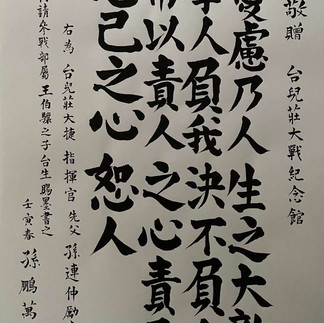 敬贈 台兒莊大戰紀念館
憂慮乃人生之大敵
寧人負我決不負
以責人之心責
己之心恕人
右為 台兒莊大捷 指揮官 先父 孫連仲勵
請參戰部屬 王伯之子台生賜墨書之
壬寅春 孫鵬萬